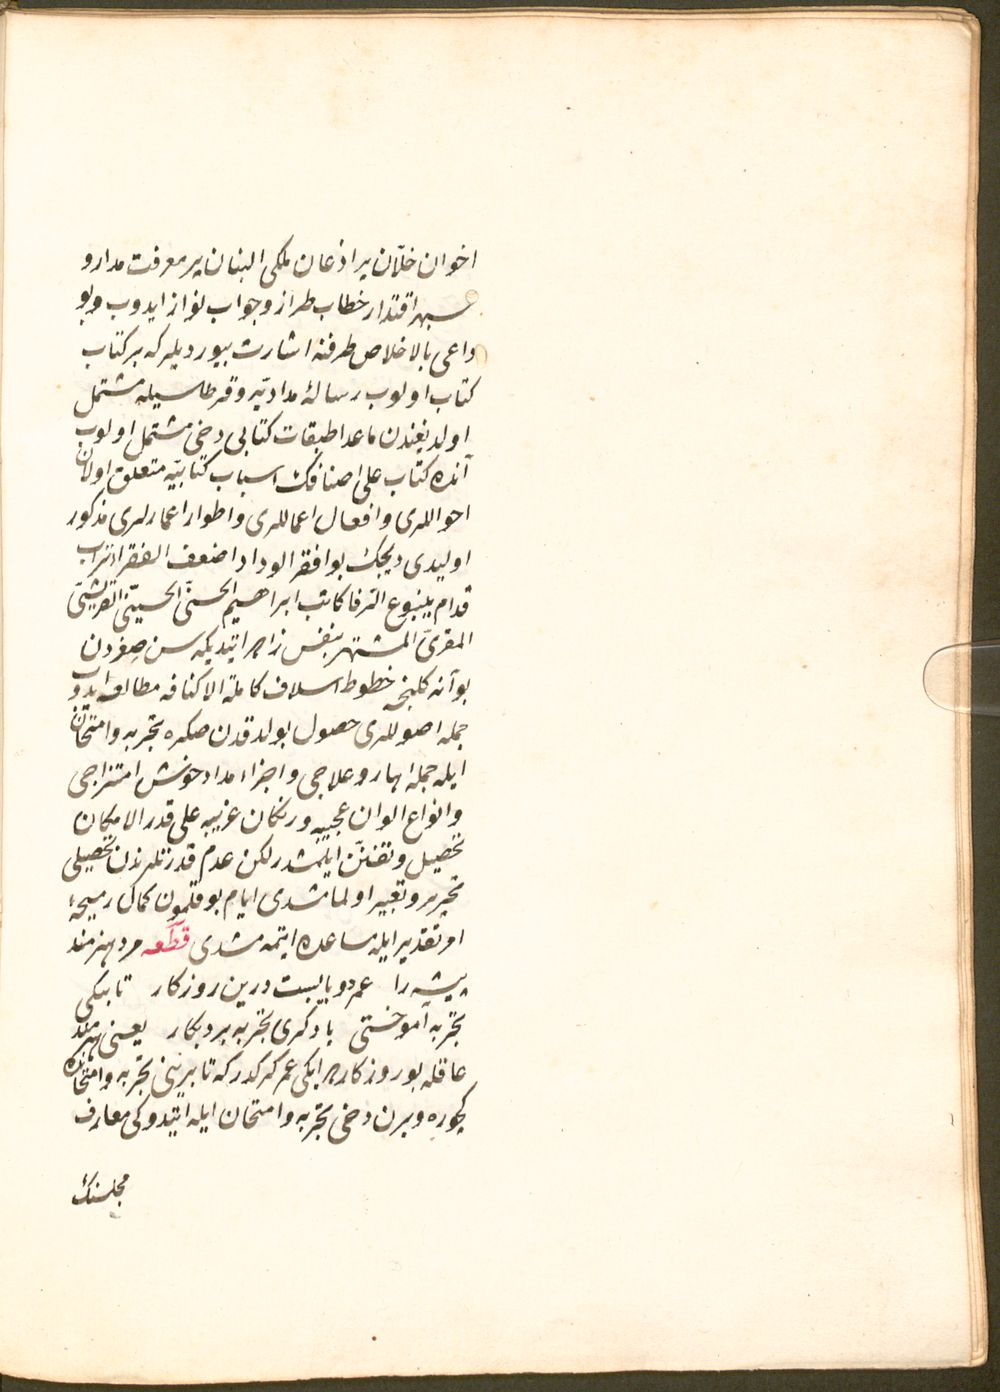 اخوان خلّان پر اذعان ملکی البنان پر معرفت مدار و
سپهر اقتدار خطاب طراز و جواب نواز ایدوب و بو
داعی بالاخلاص طرفنه اشارت بیوردیلر که بر کتاب
کتاب اولوب رسالۀ مدادیّه و قرطاسیله مشتمل
اولدیغندن ماعدا طبقات کتابی دخی مشتمل اولوب
آنده کتّاب علی اصنافک اسباب کتابیّه متعلق اولان
احواللری و افعال اعماللری و اطوار اعمارلری مذکور
اولیدی دیجک بو افقر الوداد اضعف الفقرا تراب
قدام ینبوع العرفا کاتب ابراهیم الحسنیّ الحسینیّ القریشیّ
المقریّ المشتهر بنفس زاده ایتدیکه سن صغردن
بو آنه کلنجه خطوط اسلاف کاملة الاکنافه مطالعه ایدوب
جمله اصوللری حصول بولدقدن صکره تجربه و امتحان
ایله جمله اهار و علاجی و اجزاء مداد خوش امتزاجی
و انواع الوان عجیبه و رنکان غریبه علی قدر الامکان
تحصیل و تفنّن ایلمشدر لکن عدم قدرتلرندن تحصیلی
تحریر و تعبیر اولمامشدی ایام بوقلمون کمال
امر تقدیر ایله مساعده ایتمه مشدی قطعه مرد هنرمند
پیشه را عمر دو بایست درین روزکار تا بیکی
تجربه آموختی با دکری تجربه بردی بکار یعنی هنرمند
عاقله بو روزکارده ایکی عمر کرکدر که تا برینی تجربه و امتحانده
کچوره و برن دخی تجربه و امتحان ایله ایتدوکی معارف
مجلسنک